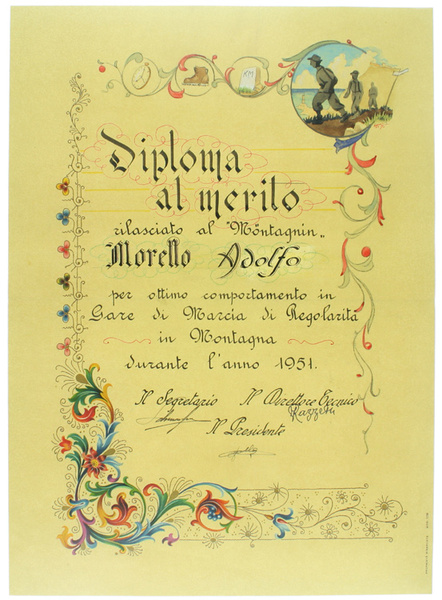 KM
Diploma
al merito
rilasciato al "Montagnin„
Morello Adolfo
per ottimo comportamento in
Gare di Marcia di Regolarità
in Montagna
durante l'anno 1951.
Il Segretario Il Direttore Tecnico
Il Presidente